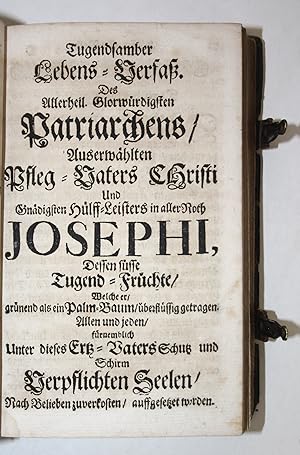 Tugendsamber
Lebens-Verfaß.
Des
Allerheil. Glorwürdigsten
Patriarchens/
Auserwählten
Pfleg-Vaters CHristi
Und
Gnädigsten Hülff-Leisters in aller Noth
JOSEPHI,
Dessen süsse
Tugend-Früchte/
Welche er/
grünend als ein Palm-Baum/ überflüssig getragen.
Allen und jeden/
fürnemblich
Unter dieses Ertz-Vaters Schutz und
Schirm
Verpflichten Seelen/
Nach Belieben zuverkosten/ auffgesetzet worden.